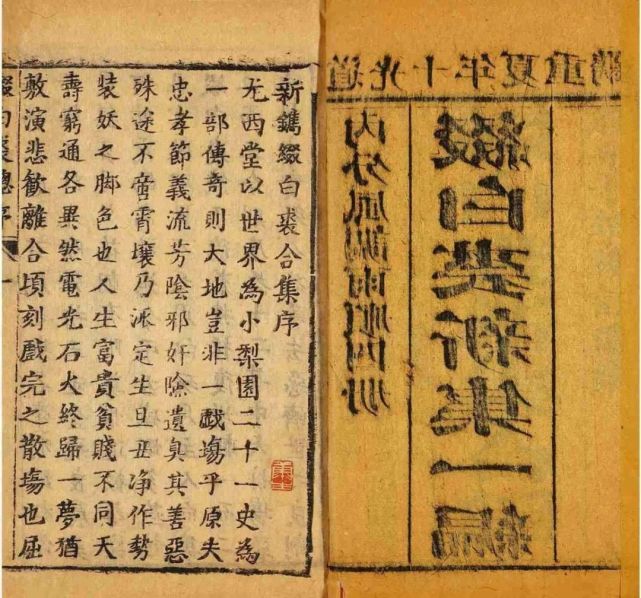 道光十年夏重鐫
綴白裘新集一編
内分風調雨順四册
新鐫綴白裘合集序
尤西堂以世界為小梨園二十一史為
一部傳奇則大地豈非一戲塲乎原夫
忠孝節義流芳陰邪奸險遺臭其善惡
殊途不啻霄壤乃派定生旦丑净作勢
裝妖之脚色也人生富貴貧賤不同夭
壽窮通各異然電光石火終歸一夢猶
敷演悲歡離合頃刻戲完之散塲也屈
綴白裘總序
一